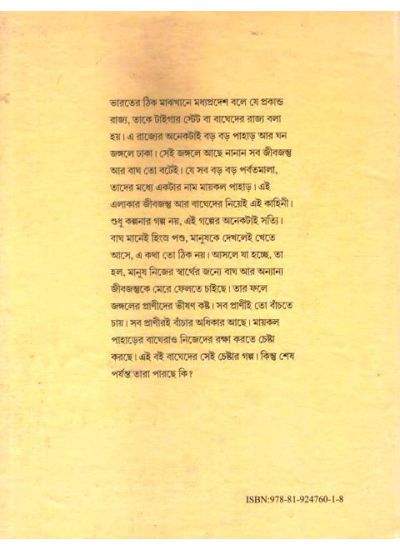 ভারতের ঠিক মাঝখানে মধ্যপ্রদেশ বলে যে প্রকান্ড
রাজ্য, তাকে টাইগার স্টেট বা বাঘেদের রাজ্য বলা
হয়। এ রাজ্যের অনেকটাই বড় বড় পাহাড় আর ঘন
জঙ্গলে ঢাকা। সেই জঙ্গলে আছে নানান সব জীবজন্তু
আর বাঘ তো বটেই। যে সব বড় বড় পর্বতমালা,
তাদের মধ্যে একটার নাম মায়কল পাহাড়। এই
এলাকার জীবজন্তু আর বাঘেদের নিয়েই এই কাহিনী।
শুধু কল্পনার গল্প নয়, এই গল্পের অনেকটাই সত্যি।
বাঘ মানেই হিংস্র পশু, মানুষকে দেখলেই খেতে
আসে, এ কথা তো ঠিক নয়। আসলে যা হচ্ছে, তা
হল, মানুষ নিজের স্বার্থের জন্যে বাঘ আর অন্যান্য
জীবজন্তুকে মেরে ফেলতে চাইছে। তার ফলে
জঙ্গলের প্রাণীদের ভীষণ কষ্ট। সব প্রাণীই তো বাঁচতে
চায়। সব প্রাণীরই বাঁচার অধিকার আছে। মায়কল
পাহাড়ের বাঘেরাও নিজেদের রক্ষা করতে চেষ্টা
করছে। এই বই বাঘেদের সেই চেষ্টার গল্প। কিন্তু শেষ
পর্যন্ত তারা পারছে কি?
ISBN:978-81-924760-1-8